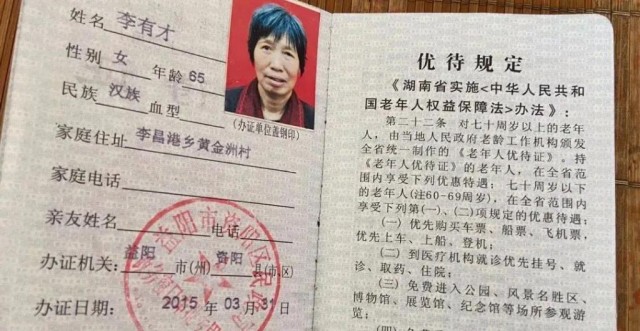 姓名 李有才
性别 女 年龄 65
民族 汉族 血型
(办证单位盖钢印)
家庭住址 李昌港乡黄金洲村
家庭电话
亲友姓名 电话
办证机关: 益阳 市(州) 资阳 县(市区)
办证日期: 2015 年 03 月 31 日
益阳市资阳区民
优待规定
《湖南省实施<中华人民共和
国老年人权益保障法>办法》:
第二十二条 对七十周岁以上的老年
人,由当地人民政府老龄工作机构颁发
全省统一制作的《老年人优待证》。持
《老年人优待证》的老年人,在全省范
围内享受下列优惠待遇:七十周岁以下
的老年人(注60-69周岁),在全省范围内
享受下列第(一)、(二)项规定的优惠待遇:
(一)优先购买车票、船票、飞机票,
优先上车、上船、登机;
(二)到医疗机构就诊优先挂号、就
诊、取药、住院;
(三)免费进入公园、风景名胜区、
博物馆、展览馆、纪念馆等场所参观游
览;